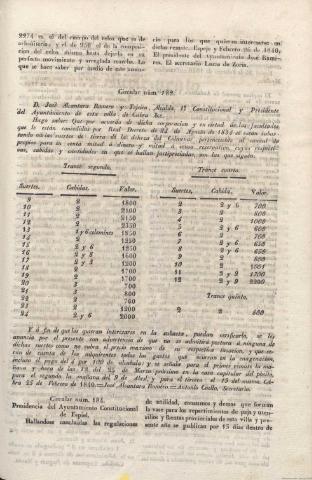 2274 rs. el del cuerpo del relox que es de
y el de 250 el de la composi-
cion del relox mismo hasta dejarlo en su
perfecto movimiento y arreglada marcha. Lo
que se hace saber por medio de este anun-
cio para los que quieran interesarse en
dicho remate. Espejo y Febrero 26 de 1840.
El presidente del Ayuntamiento José Rami-
rez. El secretario Lucas de Zorin.
Circular núm. 182.
D. José Alcantara Romero y Tejeiro, Alcalde 1.º Constitucional y Presidente
del Ayuntamiento de esta villa de Cabra &c.
Hago saber: Que por acuerdo de dicha corporacion y en virtud de las facultades
que le están concedidas por Real Decreto de 24 de Agosto de 1834
de tierra de la dehesa del
propios para la venta mitad á dinero y mitad á censo reservativo, cuyas respecti-
vas, cabidas y cantidades en que se hallan justipreciadas, son las que siguen.
Trance segundo.
Suertes. Cabidas. Valor.
9 2 1800
10 2 2100
11 2 2100
12 2 2150
13 1 y 6 celemines 1850
14 2 1250
15 2 y 6 1250
16 2 y 8 1600
17 2 y 3 1200
18 2 1700
19 2 1700
20 3 700
21 2 800
22 2 760
23 2 1200
24 2 y 6 2000
Trance cuarto.
Suertes. Cabida. Valor.
2 2 y 6 700
3 2 600
4 2 1000
5 2 y 6 600
6 2 700
7 2 y 6 650
8 2 y 6 650
9 2 800
10 2 1001
11 3 y 2 1700
12 2 y 9 2200
Trance quinto.
2 2 600
Y á fin de que los que quieran interesarse en la subasta, puedan verificarlo, se les
anuncia por el presente con advertencia de que no se admitirá postura á ninguna de
dichas suertes como no cubra el precio maximo de su respectiva tasacion, y que se-
rán de cuenta de los adquirentes todos los gastos que ocurran en la enagenacion,
incluso el pago del 4 por 100 de alcabala; y se señala para el primer remate la ma-
ñana y hora de las 12 del 25 de Marzo próximo en la casa capitular del pósito,
para el segundo la mañana del 9 de Abril, y para el tercero el 19 del mismo. Ca-
bra 25 de Febrero de 1840.=José Alcantara Romero.=Antonio Coello, Secretario.
Circular núm. 184.
Presidencia del Ayuntamiento Constitucional
de Espiel.
Hallandose concluidas las regulaciones
de utilidad, consumos y demas que forman
la vase para los repartimientos de paja y uten-
silios y frutos provinciales de esta villa y pre-
sente año se publican por 15 dias dentro de